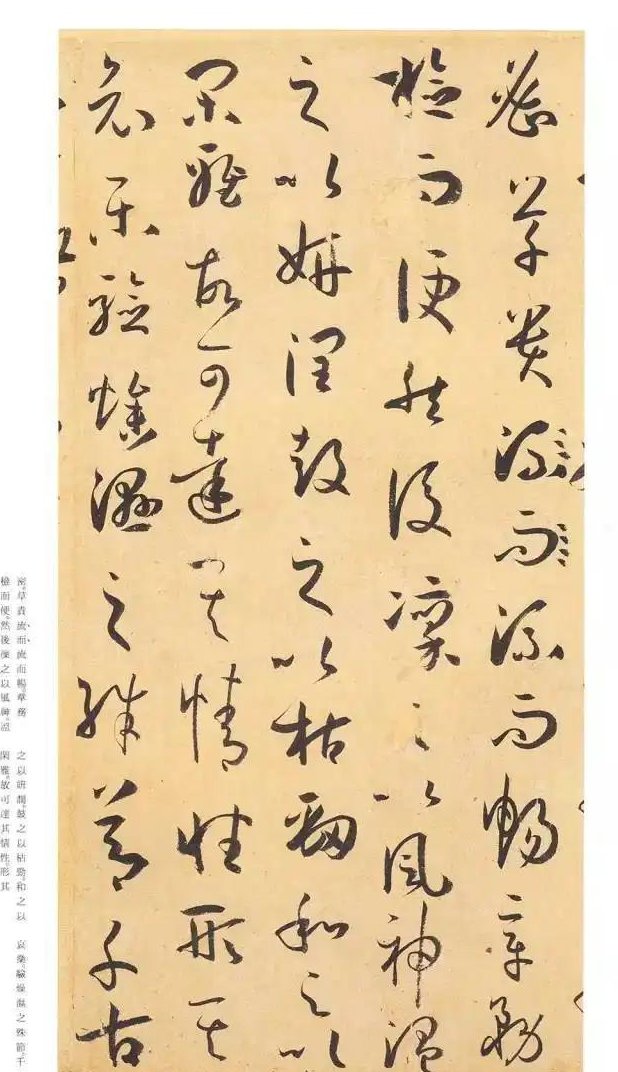 密草貴流而流而暢章務
檢而便然後凜之以風神溫
之以妍潤鼓之以枯勁和之以
閑雅故可達其情性形其
哀樂驗燥濕之殊節千古
密。草貴流而流而暢。章務
檢而便。然後凜之以風神。溫
之以妍潤。鼓之以枯勁。和之以
閑雅。故可達其情性。形其
哀樂。驗燥濕之殊節。千